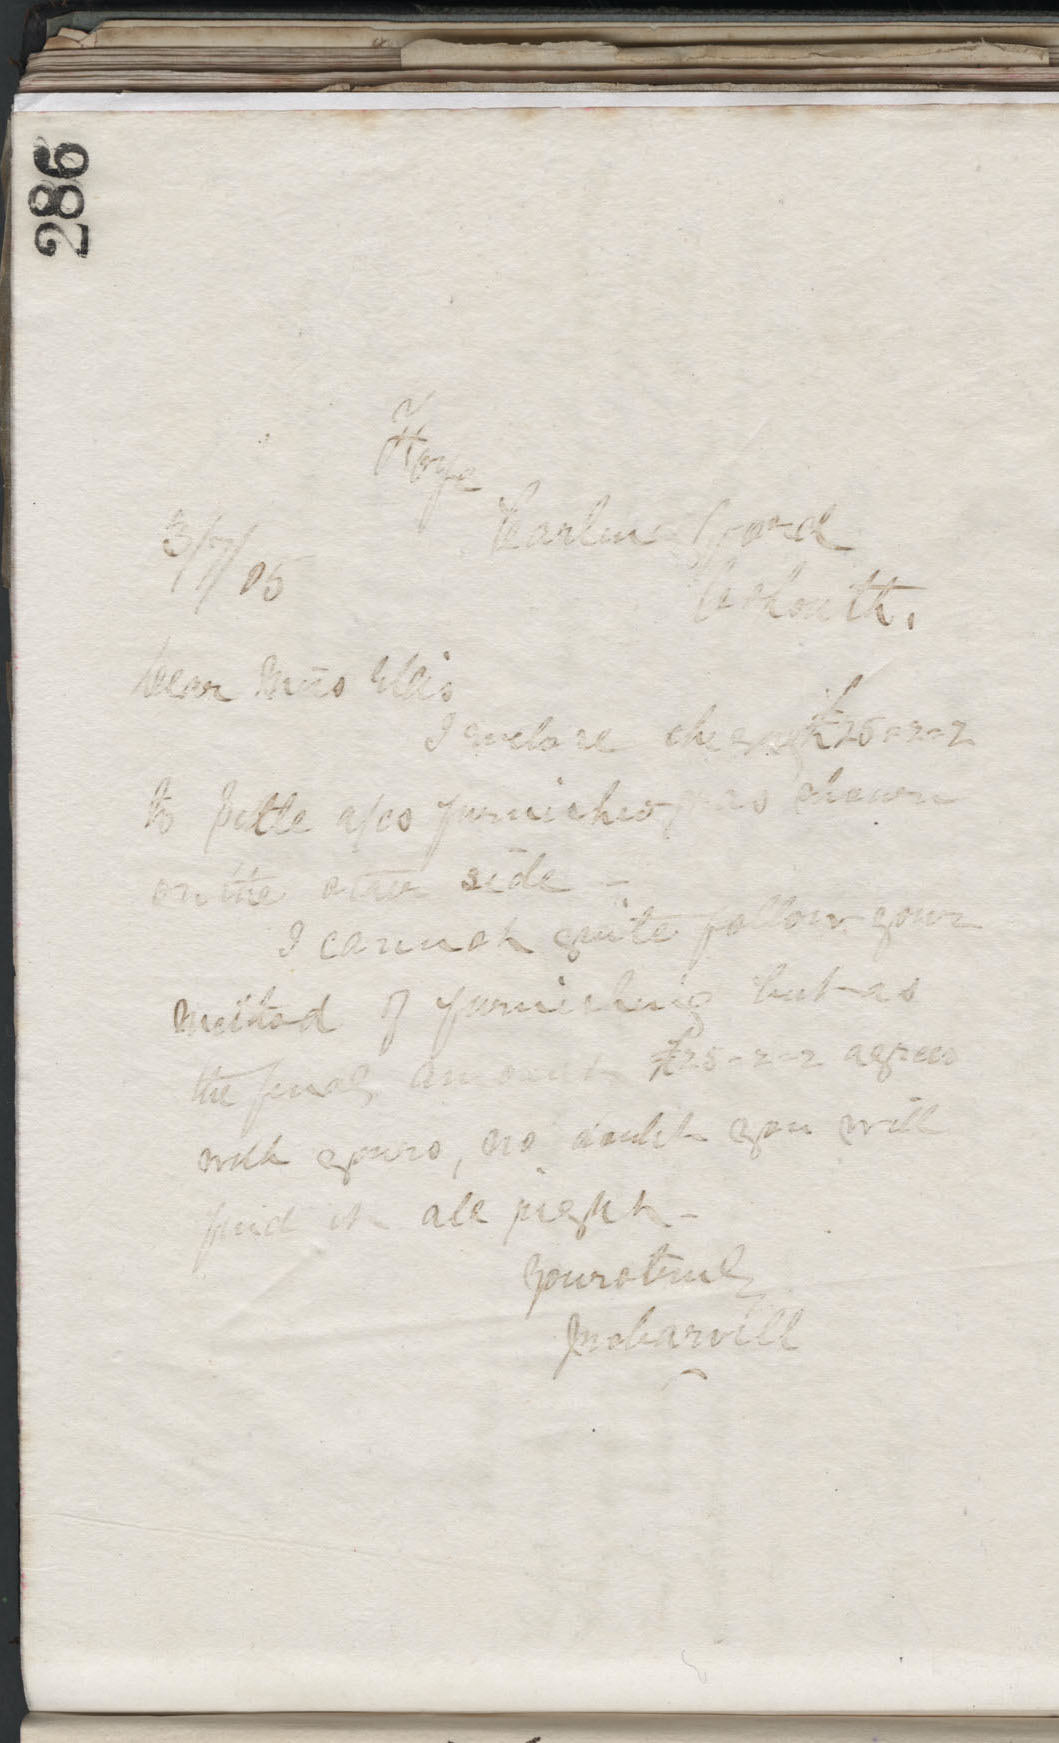 286
3/7/05
Dear Miss Ellis
I enclose cheque £25-2-2
to settle a/cs furnished, as shown
on the other side -
I cannot quite follow your
method of furnishing but as
the final amount £25-2-2 agrees
with yours, no doubt you will
find it all right -
Yours truly